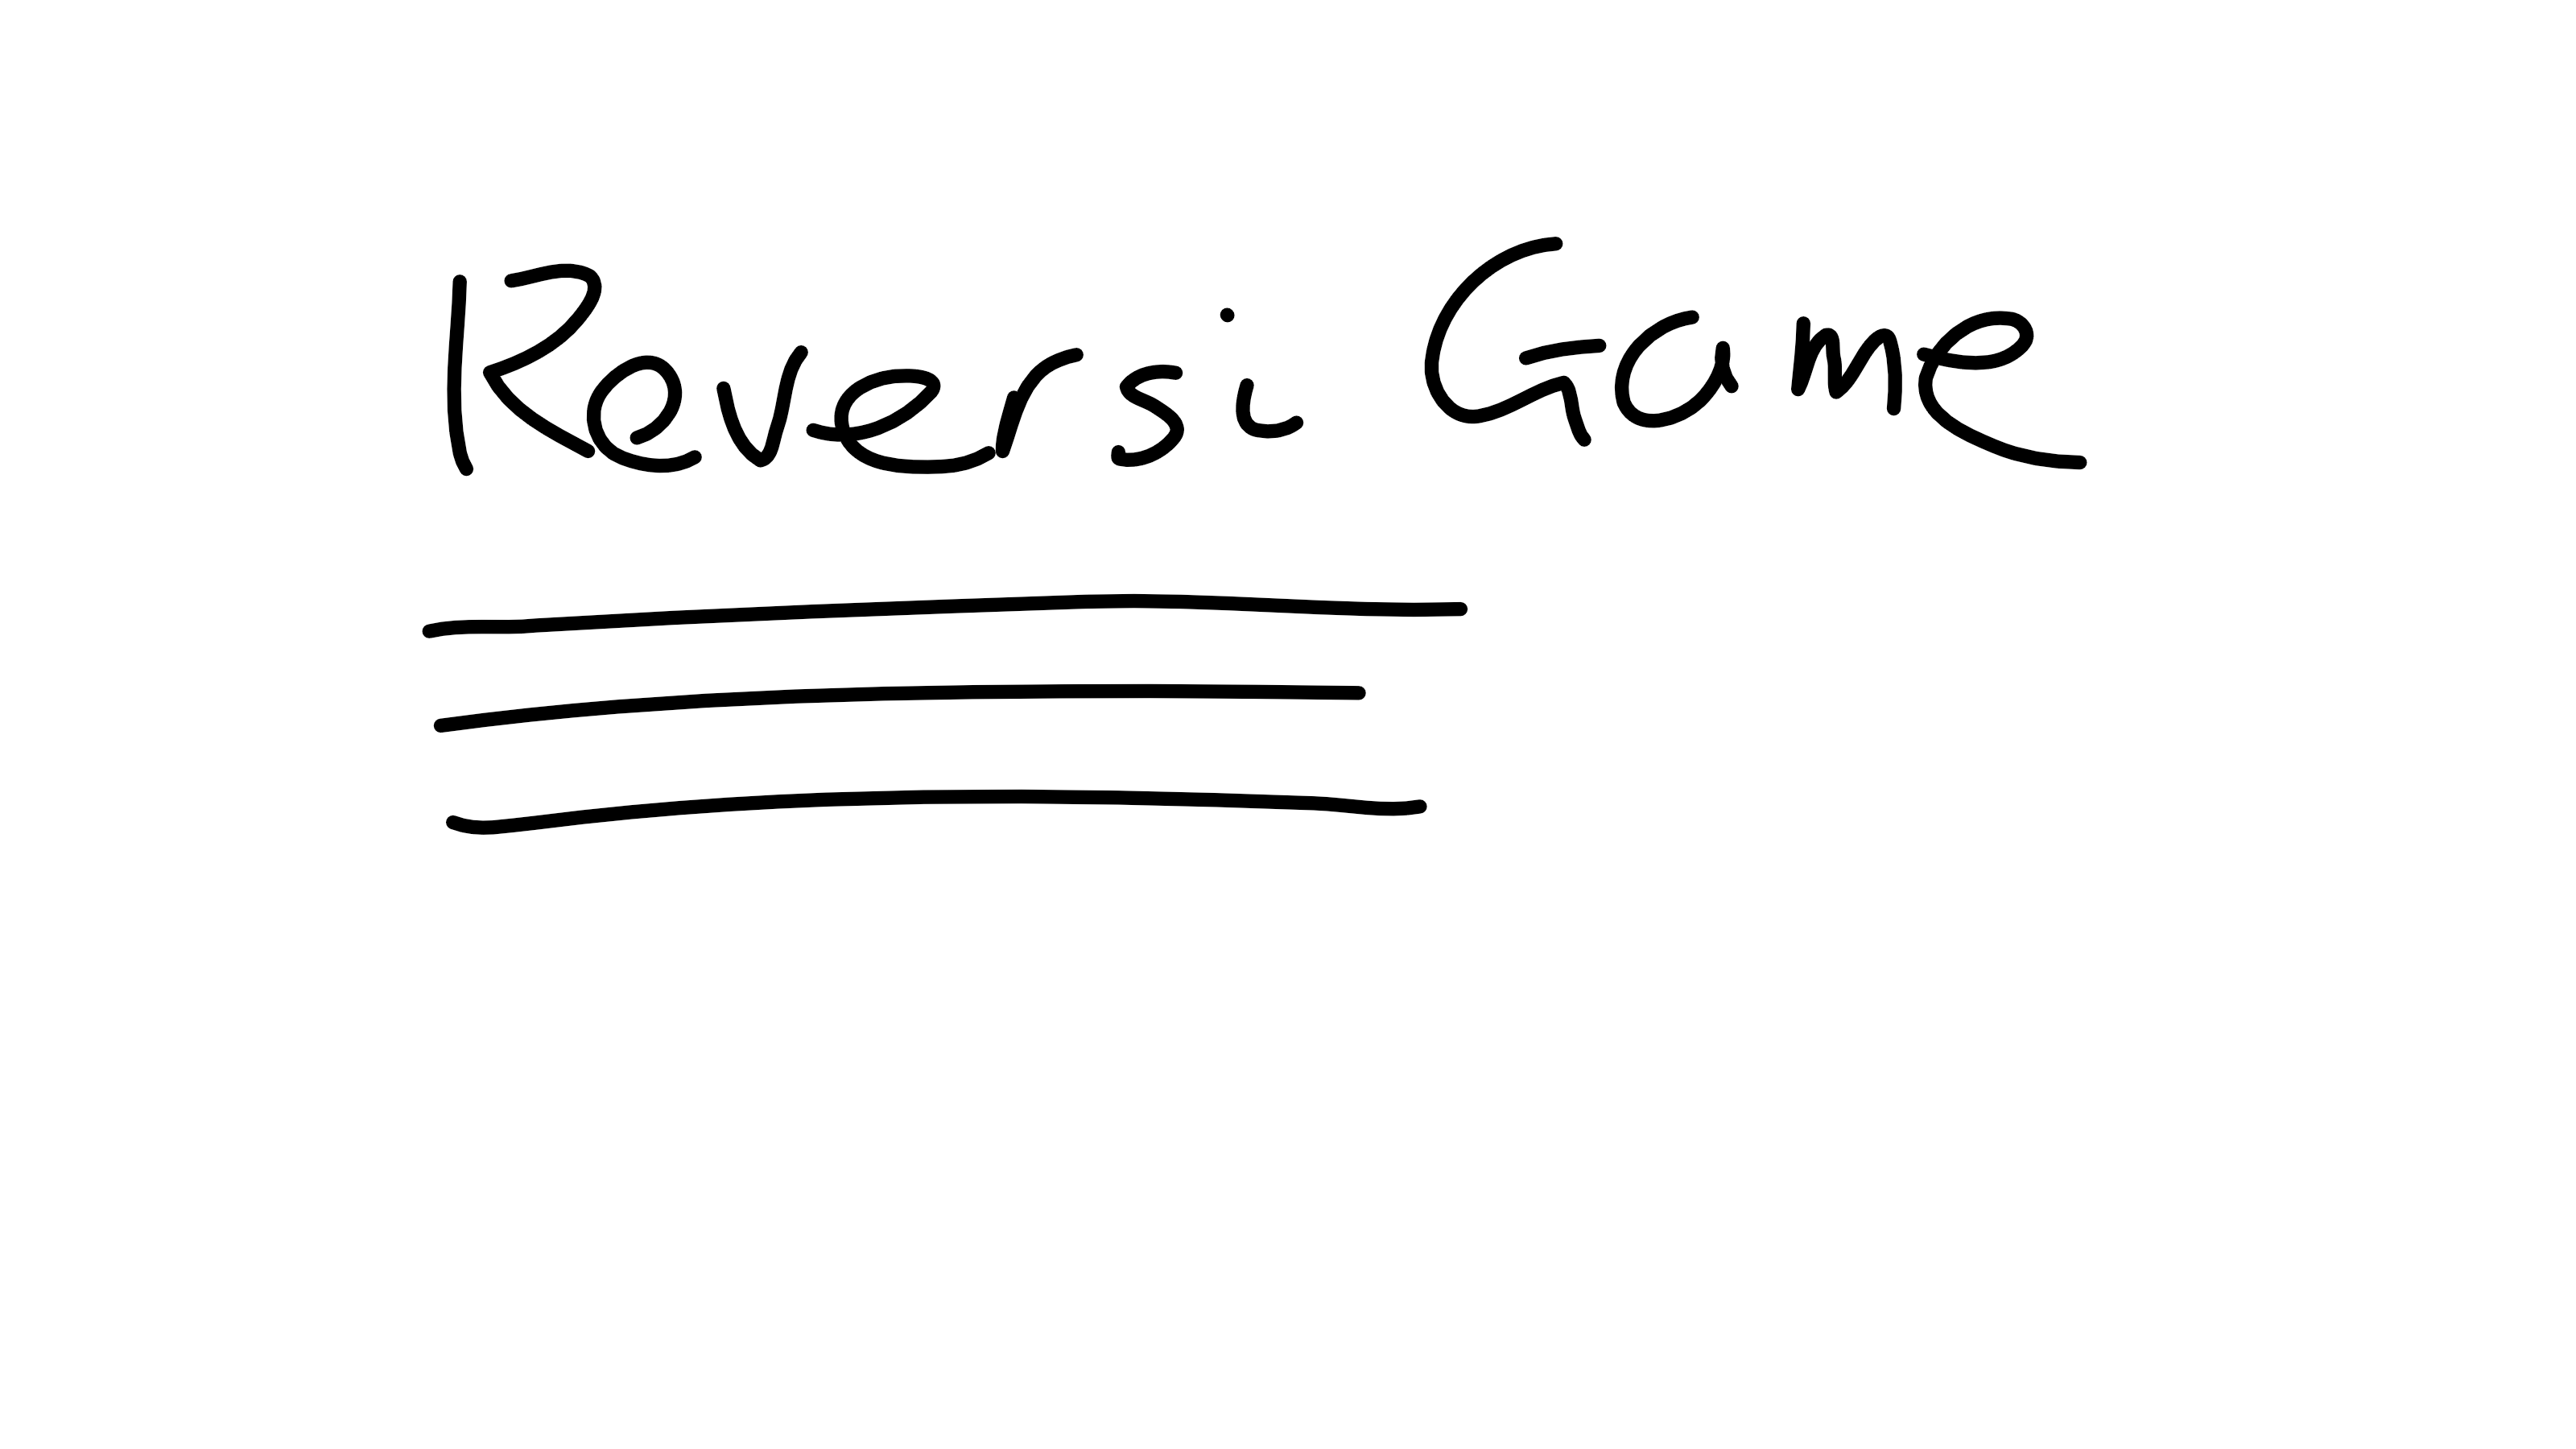 Reversi Game